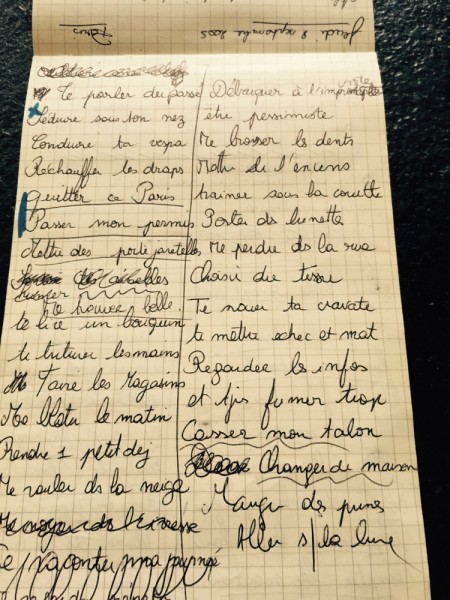 Jeudi 8 septembre 2005
Paris
Te parler du passé
Séduire sous ton nez
Conduire ta vespa
Réchauffer les draps
Quitter ce Paris
Passer mon permis
Mettre des porte jaretelles
Me trouver belle.
te lire un bouquin
te triturer les mains
Faire les Magasins
Me blottir le matin
Prendre 1 petit dej
Me rouler ds la neige
Te raconter ma journée
Débarquer à l'improviste
être pessimiste
Me brosser les dents
Mettre de l'encens
trainer sous la couette
Porter ds lunettes
Me perdre ds la rue
Choisir du tissu
Te nouer ta cravate
te mettre echec et mat
Regarder les infos
et tjs fumer trop
Casser mon talon
Changer de maison
Manger des prunes
Aller s/ la lune